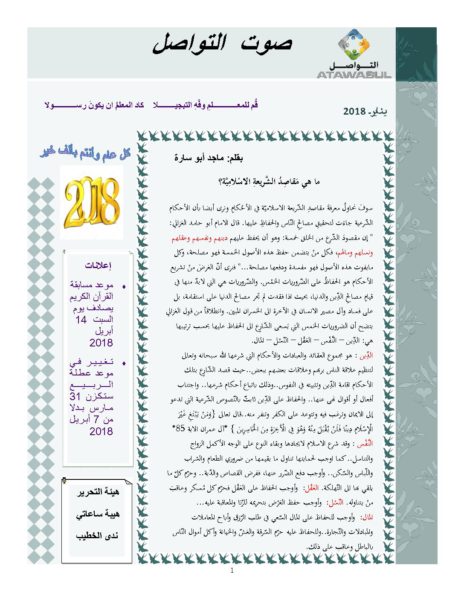 صوت التواصل
التواصل
ATAWASUL
قُم للمعـــلـــم وفّه التبجيـــلا كاد المعلمُ ان يكونَ رســـــولا
يناير 2018
كل عام وأنتم بألف خير
2018
إعلانات
موعد مسابقة
القرآن الكريم
يصادف يوم
السبت 14
أبريل
2018
تغيير في
موعد عطلة
الــربــيــع
ستكزن 31
مارس بدلا
من 7 أبريل
2018
هيئة التحرير
هيبة ساعاتي
ندى الخطيب
بقلم: ماجد أبو سارة
ما هي مَقاصِدُ الشَّريعةِ الاسْلاميَّة؟
سوفَ نحاول معرفة مقاصدِ الشّريعة الاسلاميّة في الأحكام ونرى أيضا بأن الأحكام
الشّرعية جاءَت لتحقيقِ مصالحِ النّاس والحفاظِ عليها. قال الامام أبو حامد الغزالي:
" إن مقصودَ الشّرع من الخلقِ خمسة: وهو أن يحفظ عليهم دينهم ونفسهم وعقلهم
ونسلهم ومالهم، فكلّ مَنْ يتضمن حفظ هذه الأصول الخمسة فهو مصلحة، وكل
مايفوت هذه الأصول فهو مفسدة ودفعها مصلحة..." فنرى أنّ الغرضَ منْ تشريعِ
الأحكام هو الحفاظُ على الضّرورياتِ الخمْسِ. والضّروريات هي التي لابدّ منها في
قيام مصالحِ الدّين والدنيا، بحيث اذا فقدت لم تجر مصالح الدنيا على استقامة، بل
على فساد وآل مصير الانسان في الآخرة الى الخسران المبين. وانطلاقاً من قول الغزالي
يتضح أن الضّروريات الخمس التي يسعى الشّارع الى الحفاظ عليها بحسب ترتيبها
هي: الدّين – النّفْس – العقْل – النّسْل – المال.
الدّين : هو مجموع العقائد والعبادات والأحكام التي شرعها الله سبحانه وتعالى
لتنظيم علاقة الناس بربهم وعلاقات بعضهم ببعض..حيث قصد الشّارع بتلك
الأحكام اقامة الدّين وتثبيته في النفوس..وذلك باتباع أحكام شرعها.. واجتناب
أفعال أو أقوال نهى عنها.. والحفاظ على الدّين ثابتٌ بالنّصوص الشّرعية التي تدعو
إلى الايمان وترغب فيه وتتوعد على الكفر وتنفر منه. قال تعالى {وَمَنْ يَبْتَغِ غَيْرَ
الْإِسْلَامِ دِينًا فَلَنْ يُقْبَلَ مِنْهُ وَهُوَ فِي الْآخِرَةِ مِنَ الْخَاسِرِينَ } *آل عمران الاية 85*
النّفْس : وقد شرع الاسلام لايجادها وبقاء النوع على الوجه الأكمل الزواج
والتناسل.. كما أوجب لحمايتها تناول ما يقيمها من ضروري الطعام والشراب
واللّباس والسّكن.. وأوجب دفع الضّرر عنها، ففرض القصاص والدّية.. وحرّم كلّ ما
يلقي بها الى التّهلكة. العقل: وأوجب الحفاظ على العقل فحرّم كل مسكر وعاقب
من يتناوله. النّسْل: وأوجب حفظ العرْض بتحريمه للزّنا والمعاقبة عليه...
المال: وأوجب للحفاظ على المال السّعي في طلب الرّزق وأباح المعاملات
والمبادلات والتّجارة..وللحفاظ عليه حرّم السّرقة والغشّ والخيانة وأكل أموال النّاس
بالباطل وعاقب على ذلك.
1